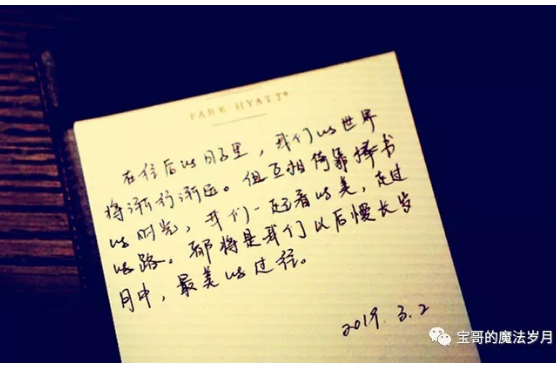 PARK HYATT®
在往后的日子里，我们的世界
将渐行渐远。但互相倚靠捧书
的时光，我们一起看的美，走过
的路。都将是我们以后慢长岁
月中，最美的过往。
2019.3.2
宝哥的魔法岁月